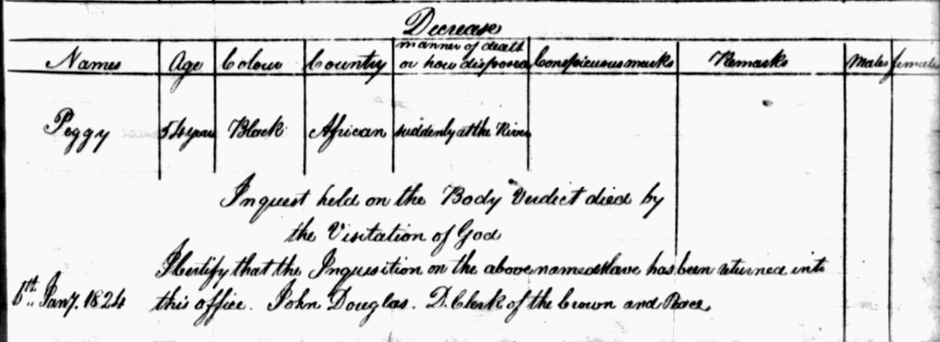 Decrease
Names Age Colour Country manner of death or how disposed Conspicuous marks Remarks Males females
Peggy 54 years Black African suddenly at the River
Inquest held on the Body Verdict died by
the Visitation of God
I Certify that the Inquisition on the above named Slave has been returned into
6th. Jany. 1824 this office. John Douglas. D. Clerk of the Crown and Peace